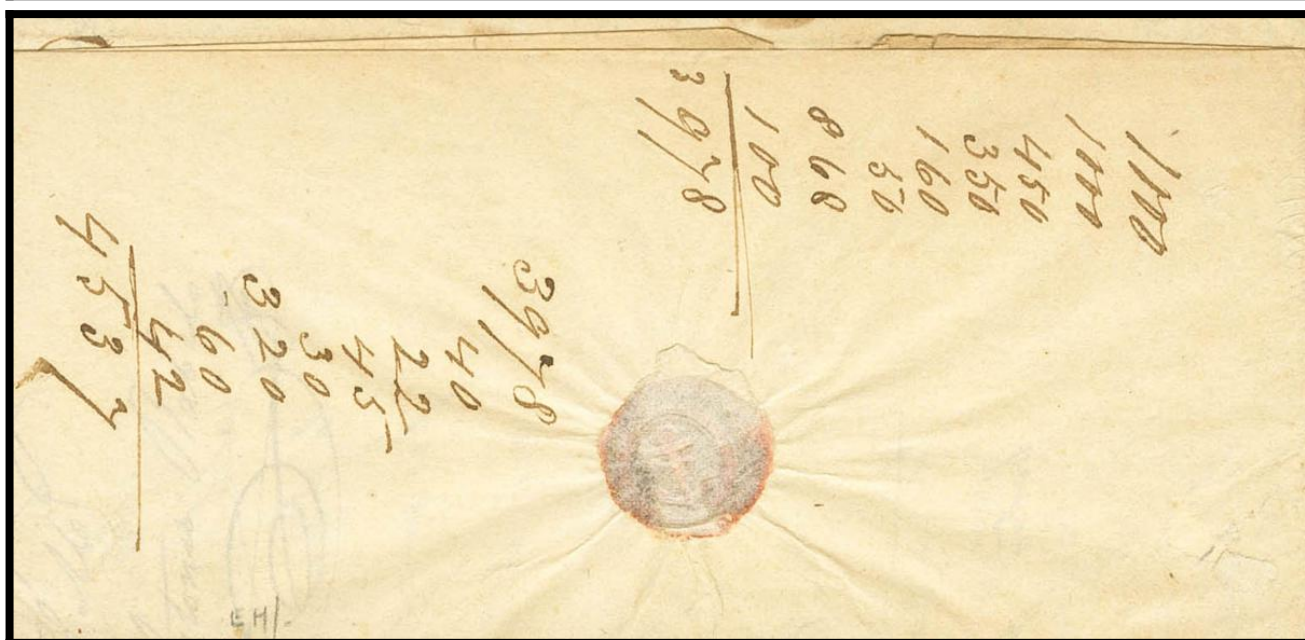 1000
1000
450
350
160
50
868
100
3978
3978
40
22
45
30
320
60
42
4537
EH/.